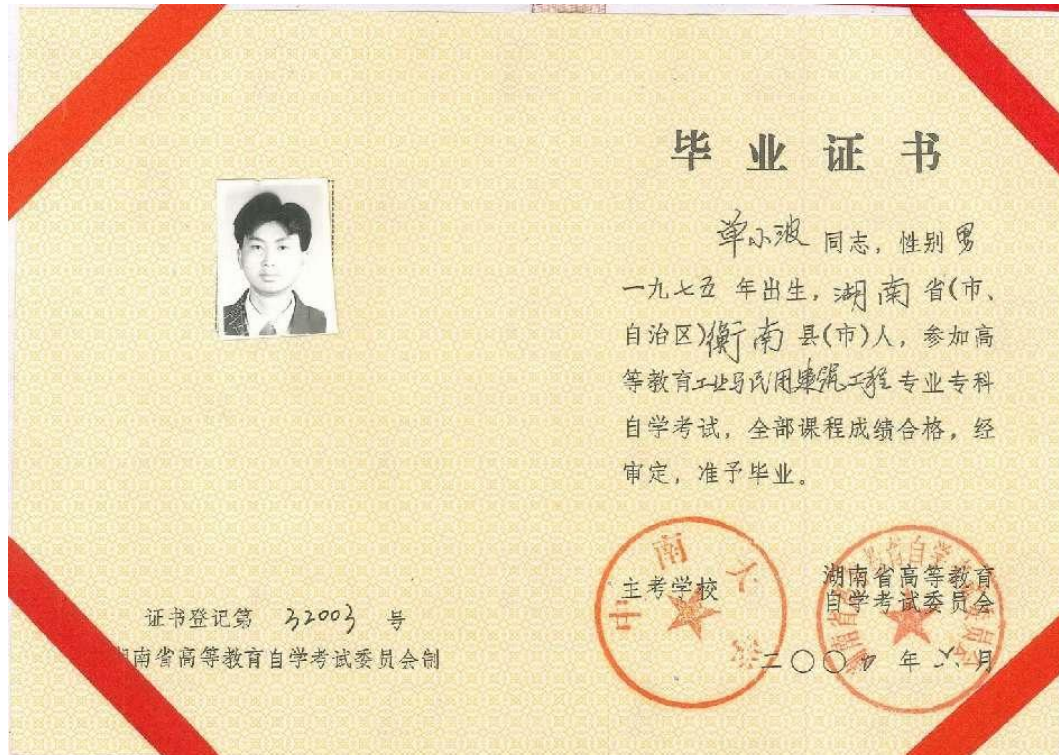 毕业证书
单小波 同志，性别 男
一九七五 年出生，湖南 省(市、
自治区)衡南 县(市)人，参加高
等教育工业与民用建筑工程专业专科
自学考试，全部课程成绩合格，经
审定，准予毕业。
中南大学
主考学校
湖南省高等教育
自学考试委员会
二〇〇四年六月
证书登记第 32003 号
湖南省高等教育自学考试委员会制